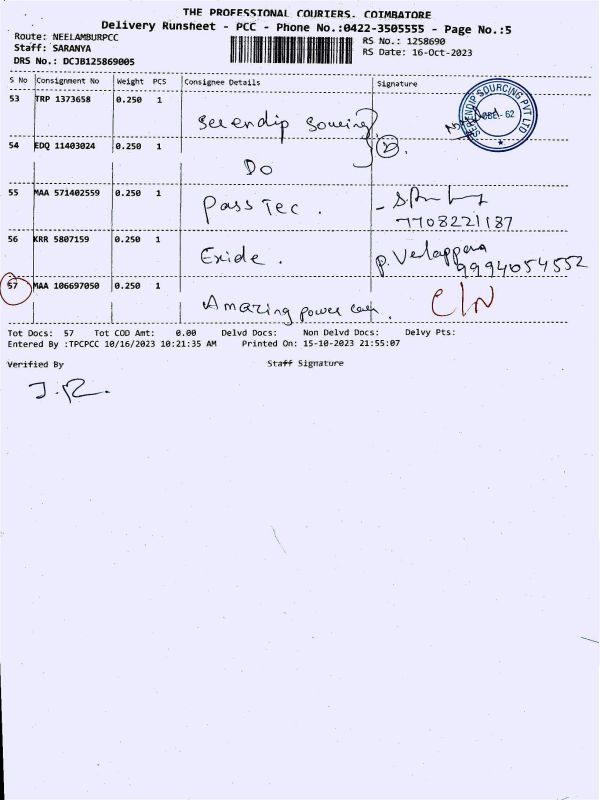 THE PROFESSIONAL COURIERS, COIMBATORE
Delivery Runsheet - PCC - Phone No.:0422-3505555 - Page No.:5
Route: NEELAMBURPCC
RS No.: 1258690
Staff: SARANYA
RS Date: 16-Oct-2023
DRS No.: DCJB125869005
S No Consignment No Weight PCS Consignee Details Signature
53 TRP 1373658 0.250 1
Serendip Sourcing
SERENDIP SOURCING PVT LTD
CBE - 62
54 EDQ 11403024 0.250 1
Do
2
55 MAA 571402559 0.250 1
Pass Tec.
7708221187
56 KRR 5807159 0.250 1
Exide.
9994054552
57 MAA 106697050 0.250 1
Amazing power
C/N
Tot Docs: 57 Tot COD Amt: 0.00 Delvd Docs: Non Delvd Docs: Delvy Pts:
Entered By :TPCPCC 10/16/2023 10:21:35 AM Printed On: 15-10-2023 21:55:07
Verified By Staff Signature
J.R.